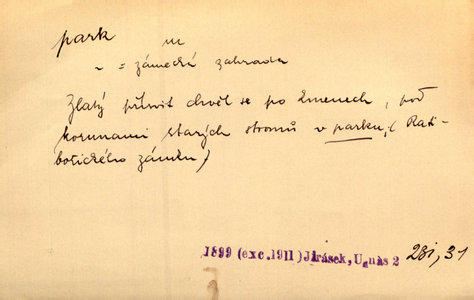 park m
~ = zámecká zahrada
Zlatý přísvit chvěl se po kmenech, pod
korunami starých stromů v parku, (Rati-
bořického zámku)
1899 (exc. 1911) Jirásek, U nás 2 281, 31